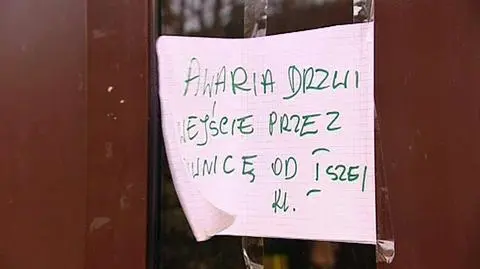 AWARIA DRZWI
WEJŚCIE PRZEZ
PIWNICĘ OD I SZEJ
KL.